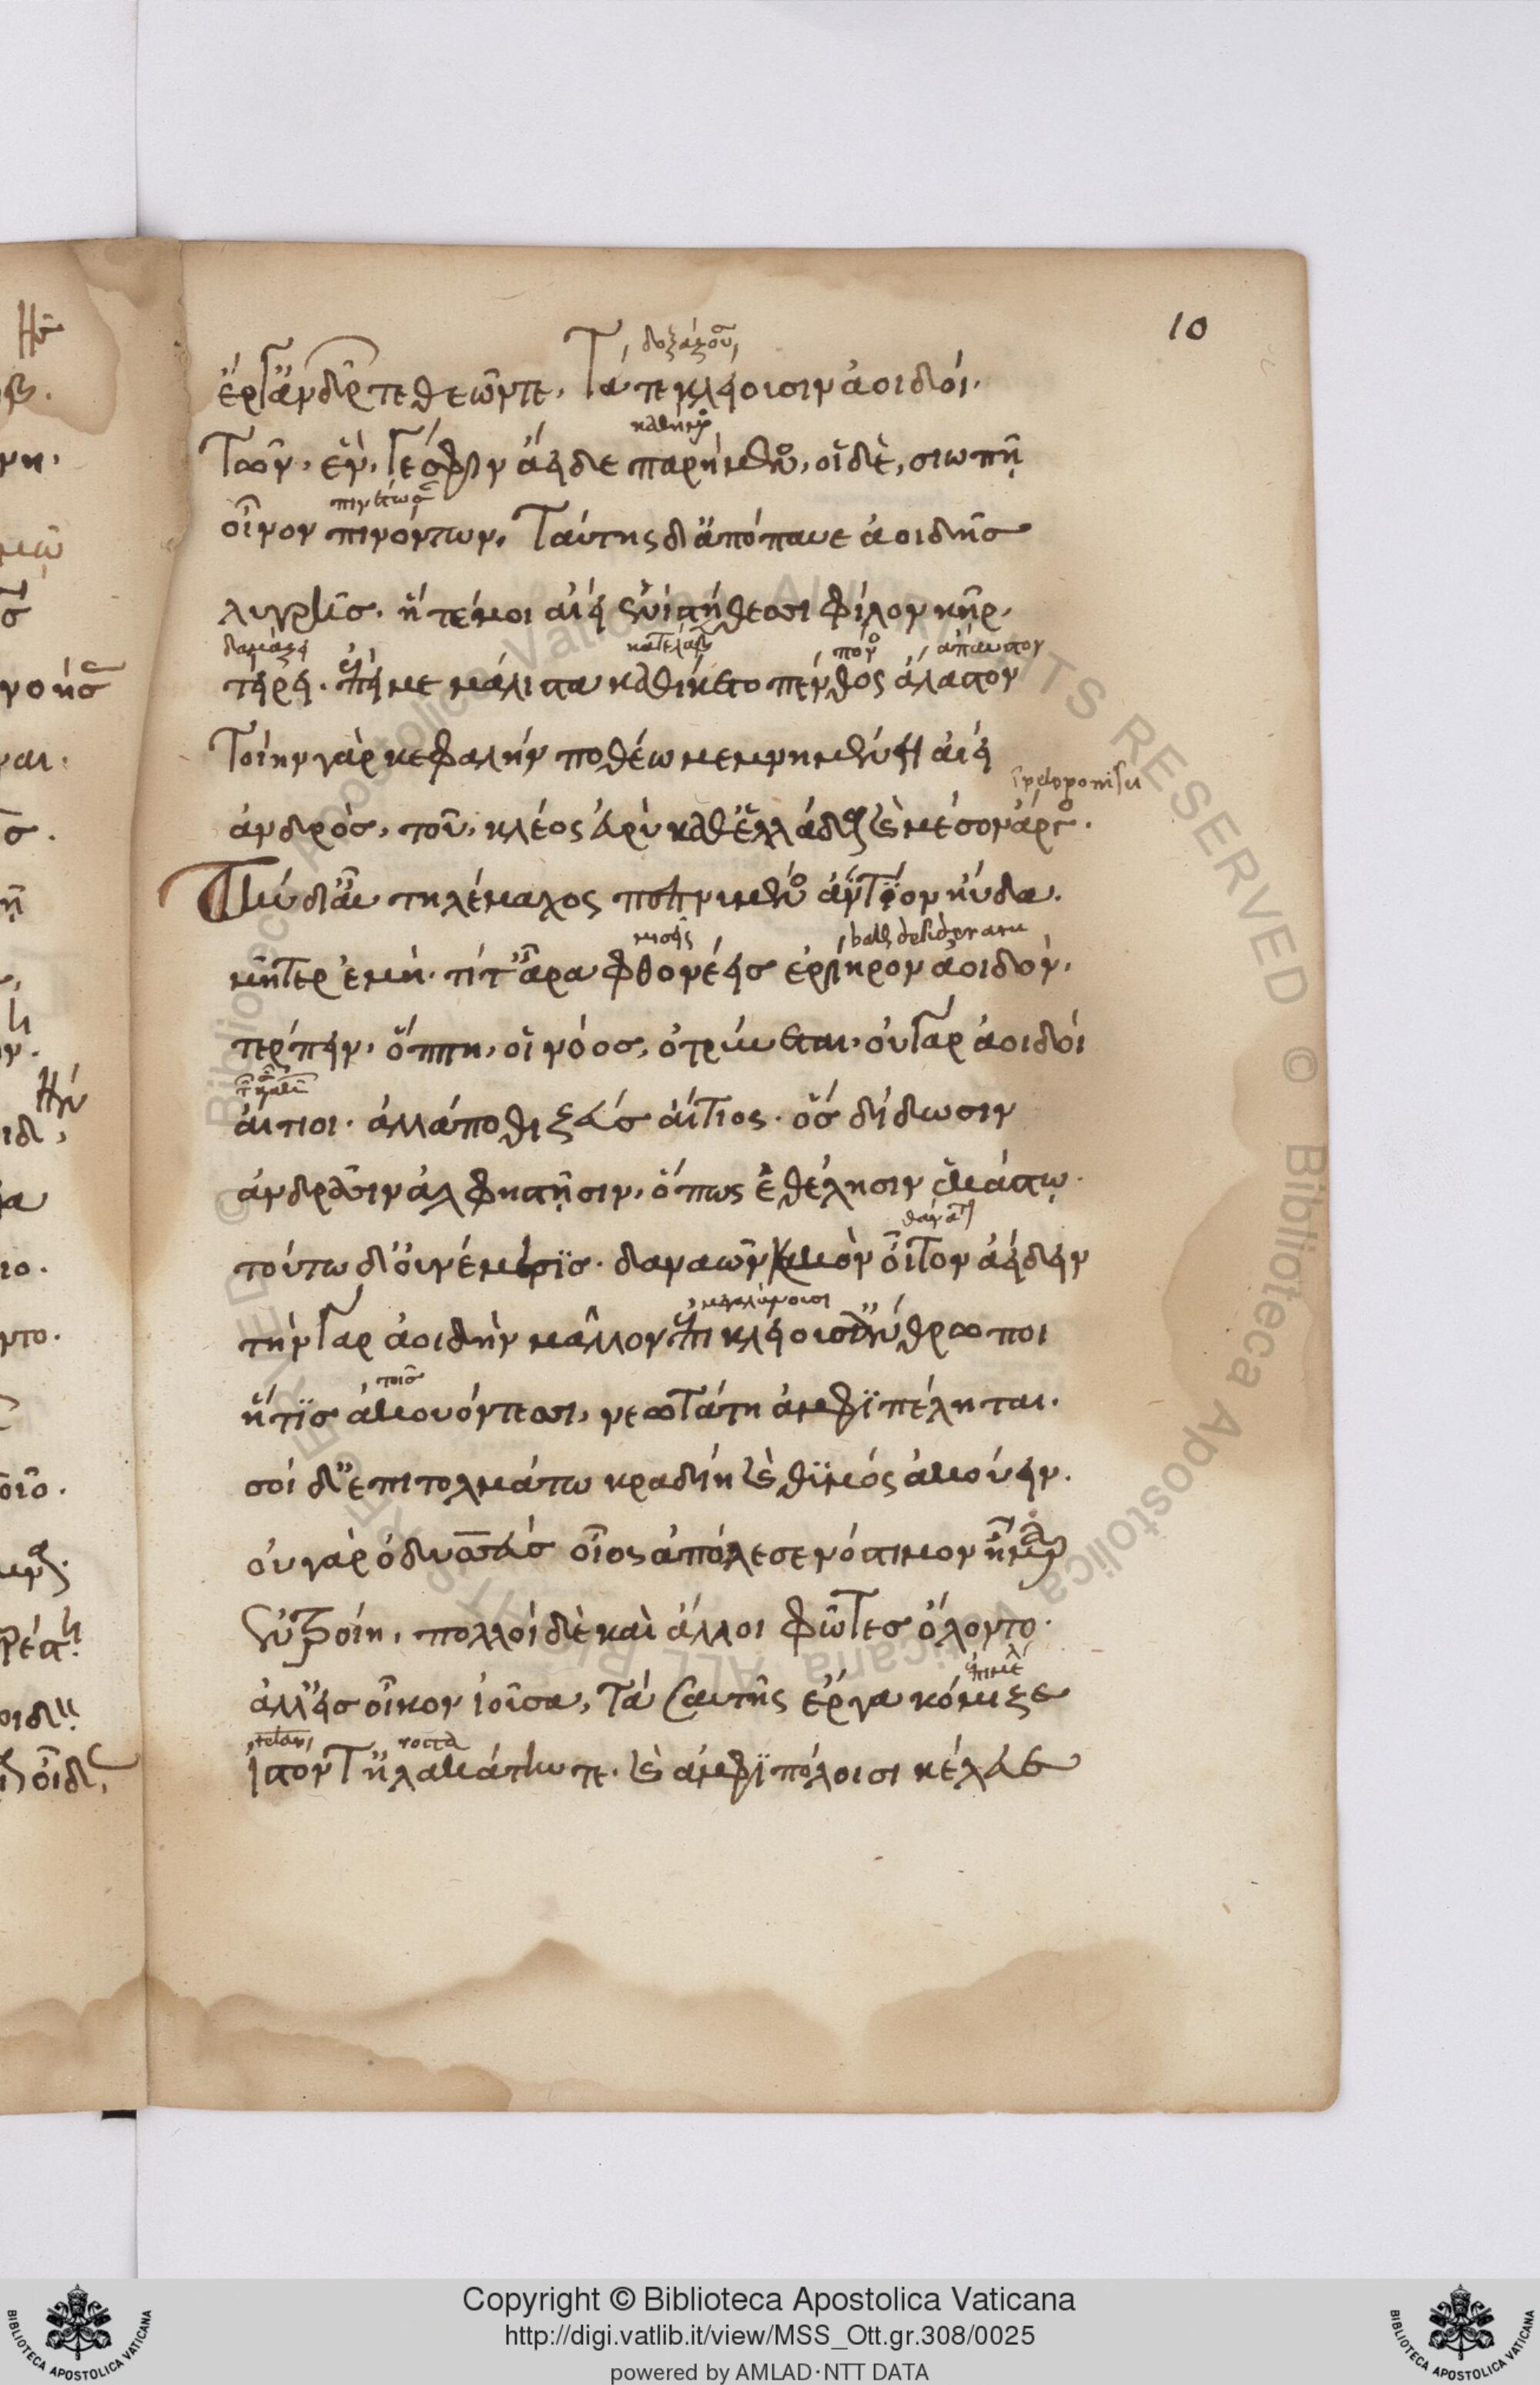 10
δοξάζου
ἔργ' ἀνδρῶν τε θεῶν τε, τά τε κλείουσιν ἀοιδοί.
καθήμενος
τῶν ἓν γέ σφιν ἄειδε παρήμενος, οἱ δὲ, σιωπῇ
οἶνον πινόντων. ταύτης δ' ἀπόπαυε ἀοιδῆς
λυγρῆς. ἥ τέ μοι αἰεὶ ἐνὶ στήθεσσι φίλον κῆρ,
δαμάζει πόνος ἄπαυστον
τείρει. ἐπεί με μάλιστα καθίκετο πένθος ἄλαστον
τοίην γὰρ κεφαλὴν ποθέω μεμνημένη αἰεὶ
ἀνδρός, τοῦ, κλέος εὐρὺ καθ' ἑλλάδα καὶ μέσον ἄργος.
Τὴν δ' αὖ τηλέμαχος πεπνυμένος ἀντίον ηὔδα.
μισεῖς
μῆτερ ἐμή. τί τ' ἄρα φθονέεις ἐρίηρον ἀοιδόν,
τέρπειν, ὅππη, οἱ νόος, ὀτρύνεται. οὔ γάρ ἀοιδοί
αἴτιοι. ἀλλά ποθι ζεύς αἴτιος. ὅς δίδωσιν
ἀνδράσιν ἀλφηστῇσιν, ὅπως ἐθέλησιν ἑκάστῳ.
θάνατον
τούτω δ' οὐ νέμεσις. δαναῶν κακὸν οἶτον ἀείδειν
τὴν γάρ ἀοιδὴν μᾶλλον ἐπικλείουσ' ἄνθρωποι
τοῖς
ἥτις ἀκουόντεσσι, νεωτάτη ἀμφιπέληται.
σοί δ' ἐπιτολμάτω κραδίη καὶ θυμός ἀκούειν.
οὐ γὰρ ὀδυσσεύς οἶος ἀπόλεσε νόστιμον ἦμαρ
ἐν τροίη, πολλοί δὲ καὶ ἄλλοι φῶτες ὄλοντο.
ἀλλ' εἰς οἶκον ἰοῦσα, τά σαυτῆς ἔργα κόμιζε
telam rocca
ἱστόν τ' ἠλακάτην τε. καὶ ἀμφιπόλοισι κέλευε
Copyright © Biblioteca Apostolica Vaticana
http://digi.vatlib.it/view/MSS_Ott.gr.308/0025
powered by AMLAD·NTT DATA